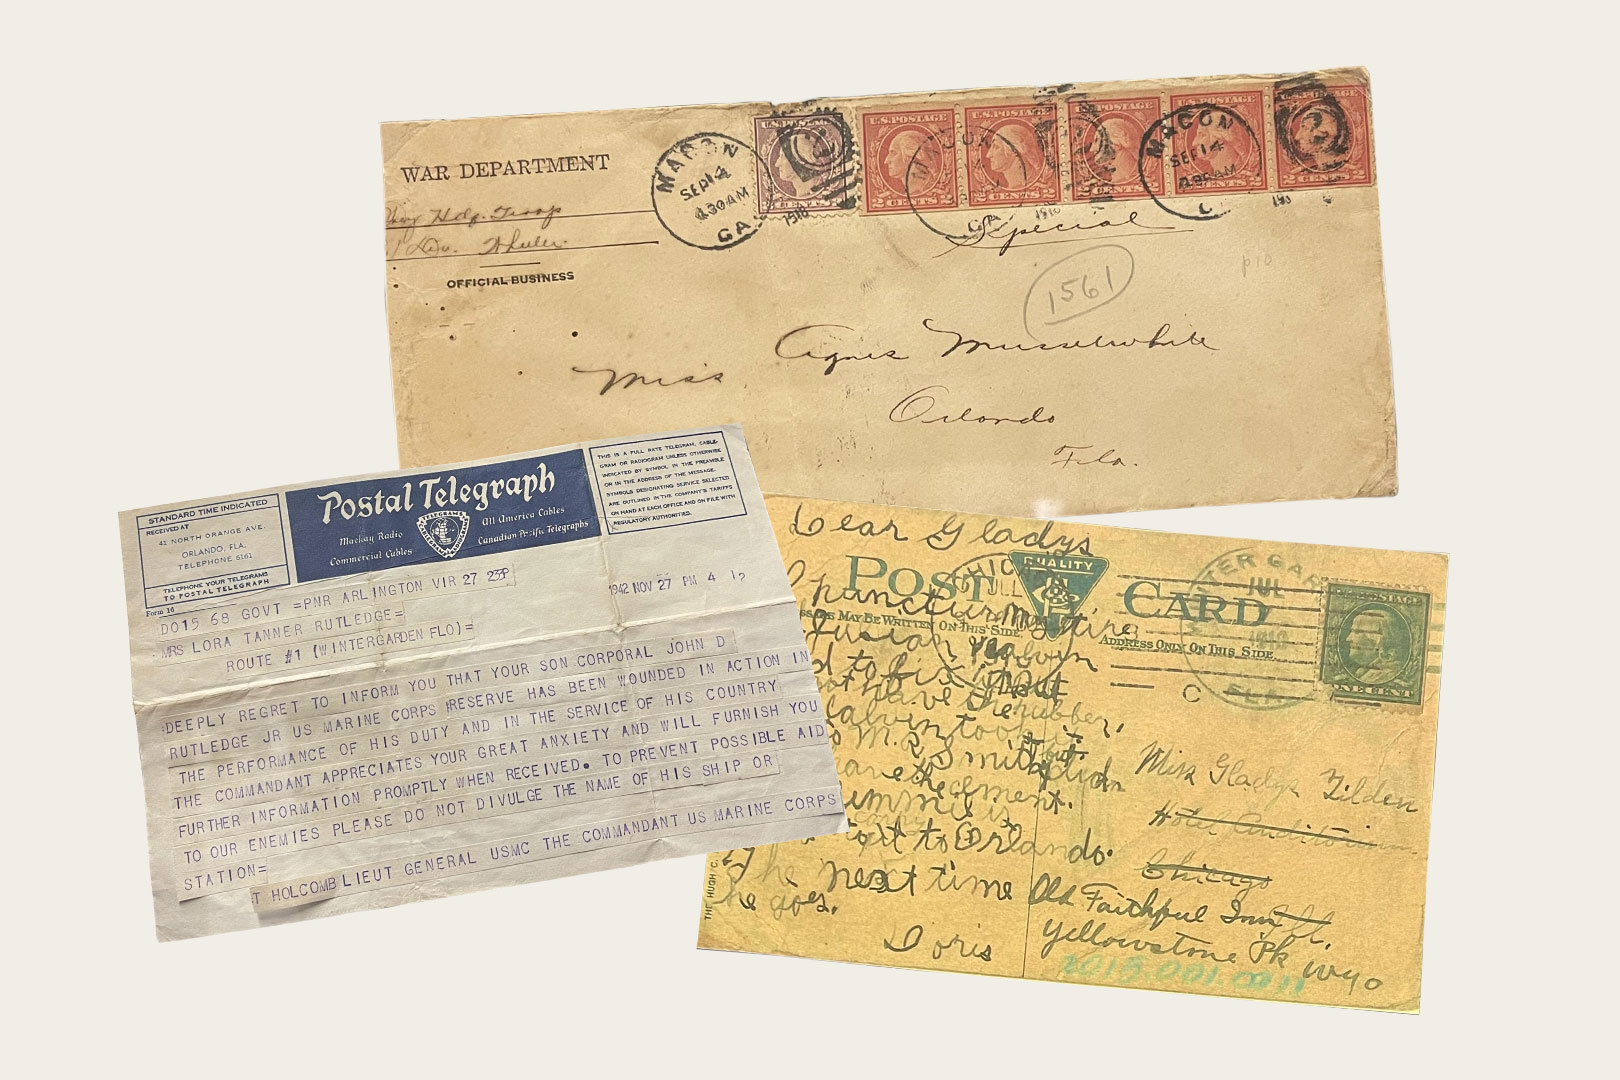 WAR DEPARTMENT
Hdq. Troop
Div. Wheeler.
OFFICIAL BUSINESS
MACON
SEP 14
9 30 AM
GA
1918
U.S. POSTAGE
U.S. POSTAGE
U.S. POSTAGE
U.S. POSTAGE
U.S. POSTAGE
2 CENTS 2
2 CENTS 2
2 CENTS 2
2 CENTS 2
2 CENTS 2
MACON
GA
1918
MACON
SEP 14
Special
1561
p10
Miss Agnes Musselwhite
Orlando
Fla.
STANDARD TIME INDICATED
RECEIVED AT
41 NORTH ORANGE AVE.
ORLANDO, FLA.
TELEPHONE 5161
TELEPHONE YOUR TELEGRAMS
TO POSTAL TELEGRAPH
Form 16
Postal Telegraph
Mackay Radio
Commercial Cables
All America Cables
Canadian Pacific Telegraphs
THIS IS A FULL RATE TELEGRAM, CABLE-
GRAM OR RADIOGRAM UNLESS OTHERWISE
INDICATED BY SYMBOL IN THE PREAMBLE
OR IN THE ADDRESS OF THE MESSAGE.
SYMBOLS DESIGNATING SERVICE SELECTED
ARE OUTLINED IN THE COMPANY'S TARIFFS
ON HAND AT EACH OFFICE AND ON FILE WITH
REGULATORY AUTHORITIES.
DO15 68 GOVT =PNR ARLINGTON VIR 27 239P
1942 NOV 27 PM 4
MRS LORA TANNER RUTLEDGE=
ROUTE #1 (WINTERGARDEN FLO)=
:DEEPLY REGRET TO INFORM YOU THAT YOUR SON CORPORAL JOHN D
RUTLEDGE JR US MARINE CORPS RESERVE HAS BEEN WOUNDED IN ACTION IN
THE PERFORMANCE OF HIS DUTY AND IN THE SERVICE OF HIS COUNTRY
THE COMMANDANT APPRECIATES YOUR GREAT ANXIETY AND WILL FURNISH YOU
FURTHER INFORMATION PROMPTLY WHEN RECEIVED. TO PREVENT POSSIBLE AID
TO OUR ENEMIES PLEASE DO NOT DIVULGE THE NAME OF HIS SHIP OR
STATION=
T HOLCOMB LIEUT GENERAL USMC THE COMMANDANT US MARINE CORPS
Dear Gladys
POST CARD
QUALITY
MAY BE WRITTEN ON THIS SIDE
ADDRESS ONLY ON THIS SIDE
CHIC
JUL
TER GAR
JUL
FLA
ONE CENT
punctur my tire
Calvin
to fix it but
have the rubber.
Calvin took it
to Mr Smith but
didn
have the cement.
to Orlando.
The next time
he goes.
Doris
THE HUGH C.
Miss Gladys Tilden
Hotel Auditorium
Chicago
Ill.
Old Faithful Inn
Yellowstone Pk Wyo
2015.001.0011